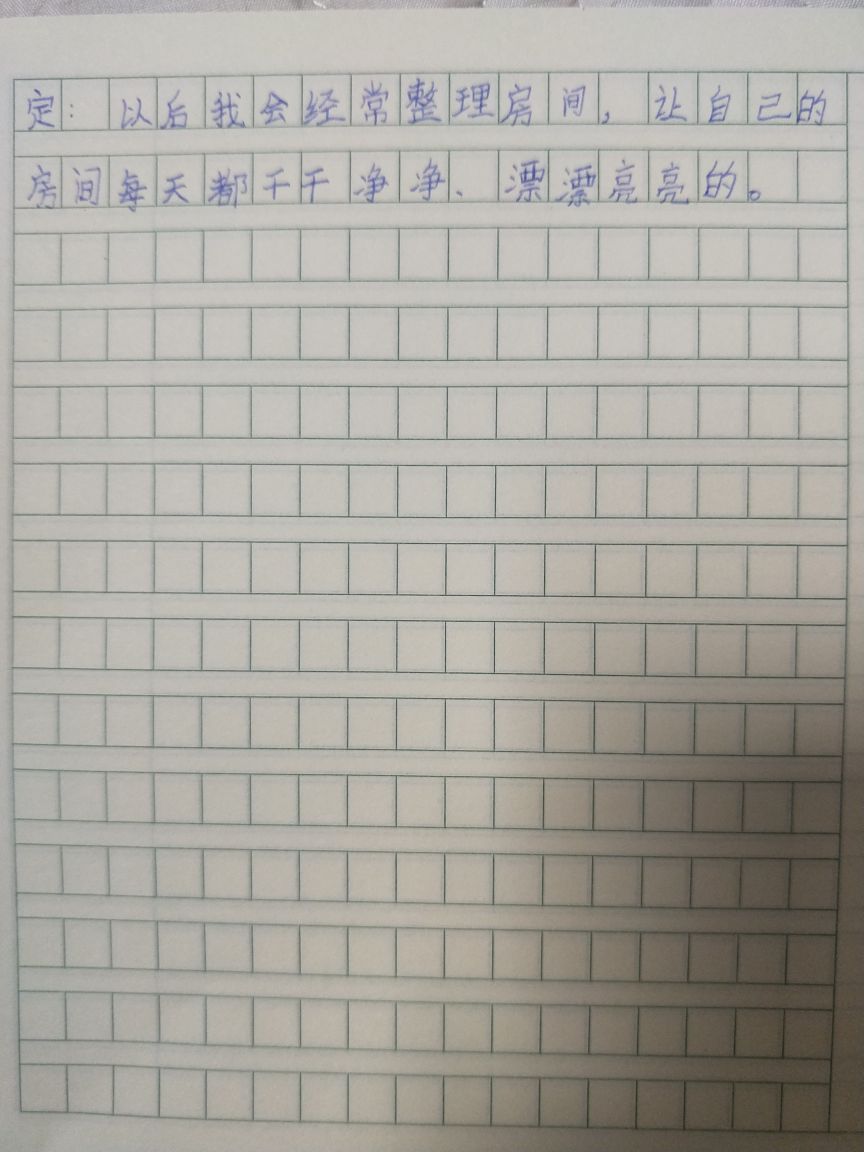 定：以后我会经常整理房间，让自己的
房间每天都干干净净、漂漂亮亮的。